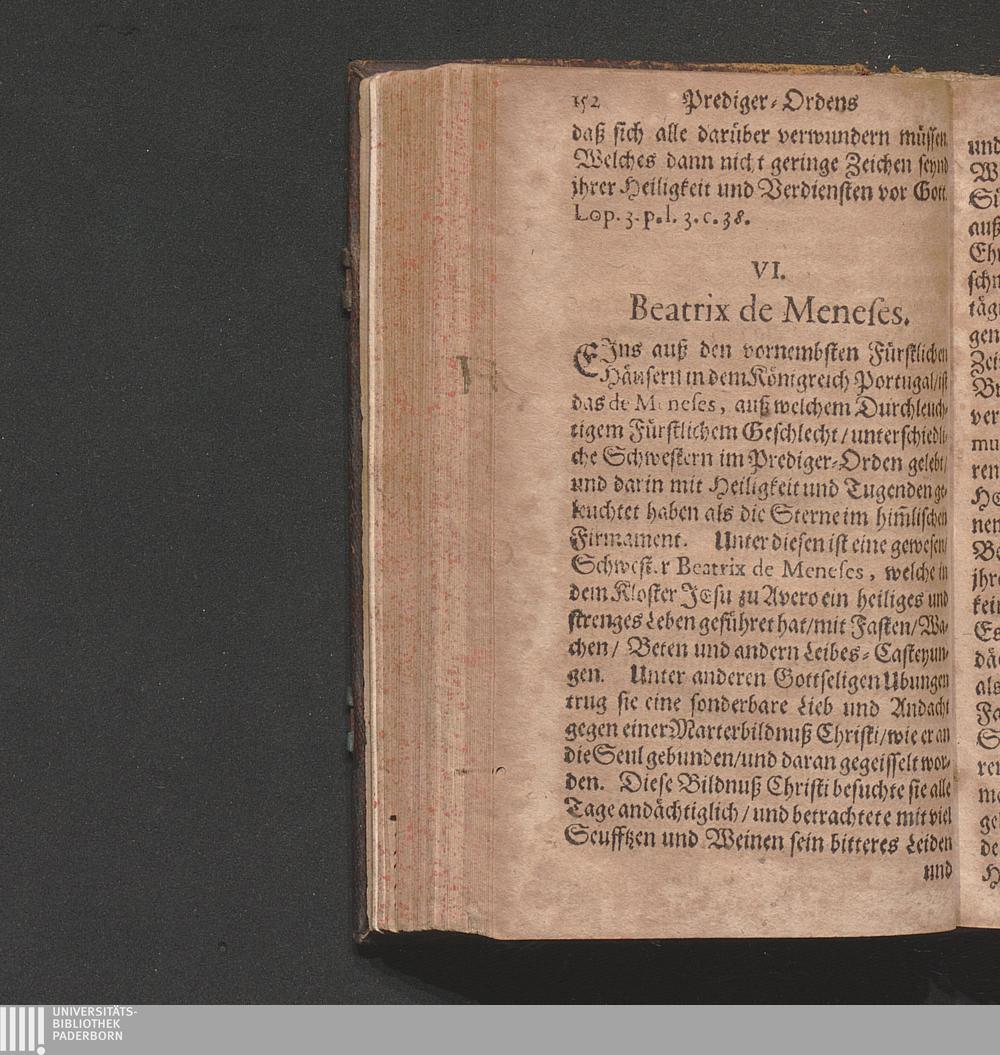 152 Prediger-Ordens
daß sich alle darüber verwundern müssen
Welches dann nicht geringe Zeichen seynd
jhrer Heiligkeit und Verdiensten vor Gott.
Lop. 3. p. l. 3. c. 38.
VI.
Beatrix de Meneses.
EJns auß den vornembsten Fürstlichen
Häusern in dem Königreich Portugal/ist
das de Meneses, auß welchem Durchleuch-
tigem Fürstlichem Geschlecht/unterschiedli-
che Schwestern im Prediger-Orden gelebt/
und darin mit Heiligkeit und Tugenden ge-
leuchtet haben als die Sterne im him̃lischen
Firmament. Unter diesen ist eine gewesen/
Schwester Beatrix de Meneses, welche in
dem Kloster JEsu zu Avero ein heiliges und
strenges Leben geführet hat/mit Fasten/Wa-
chen/ Beten und andern Leibes-Casteyun-
gen. Unter anderen Gottseligen Ubungen
trug sie eine sonderbare Lieb und Andacht
gegen einer Marterbildnuß Christi/wie er an
die Seul gebunden/und daran gegeisselt wor-
den. Diese Bildnuß Christi besuchte sie alle
Tage andächtiglich/und betrachtete mit viel
Seufftzen und Weinen sein bitteres Leiden
und
UNIVERSITÄTS-
BIBLIOTHEK
PADERBORN